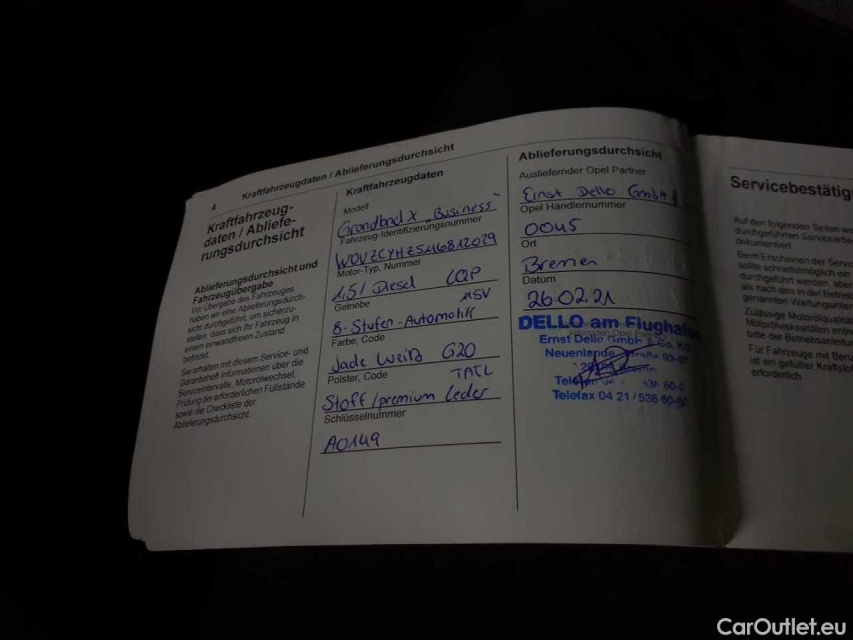 4
Kraftfahrzeugdaten / Ablieferungsdurchsicht
Kraftfahrzeug-
daten / Abliefe-
rungsdurchsicht
Ablieferungsdurchsicht und
Fahrzeugübergabe
Vor Übergabe des Fahrzeuges
haben wir eine Ablieferungsdurch-
sicht durchgeführt, um sicherzu-
stellen, dass sich Ihr Fahrzeug in
einem einwandfreien Zustand
befindet.
Sie erhalten mit diesem Service- und
Garantieheft Informationen über die
Serviceintervalle, Motorölwechsel,
Prüfung der erforderlichen Füllstände
sowie die Checkliste der
Ablieferungsdurchsicht.
Kraftfahrzeugdaten
Modell
Grandland X "Business"
Fahrzeug-Identifizierungsnummer
Motor-Typ, Nummer
1,5l Diesel LQP
Getriebe
MSV
8-Stufen-Automatik
Farbe, Code
Jade Weiß G20
Polster, Code
TATL
Stoff/premium Leder
Schlüsselnummer
A0149
Ablieferungsdurchsicht
Ausliefernder Opel Partner
Ernst Dello GmbH &
Opel Händlernummer
0045
Ort
Bremen
Datum
26.02.21
DELLO am Flughafen
Ernst Dello GmbH & Co. KG
Neuenlander Straße 93-97
Telefon
Telefax 04 21 / 536 60-60
Servicebestätig
Auf den folgenden Seiten
durchgeführten Servicearbe
dokumentiert.
Beim Erscheinen der Service
sollte schnellstmöglich ein
durchgeführt werden, aber
als nach den in der Betrieb
genannten Wartungsinter
Zulässige Motorölqualität
Motorölviskositäten entne
bitte der Betriebsanleitu
Für Fahrzeuge mit Benz
ist ein gefüllter Kraftsto
erforderlich.
CarOutlet.eu